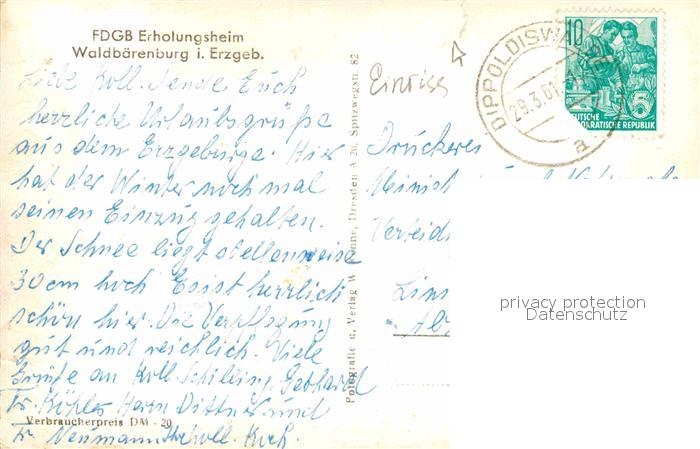 FDGB Erholungsheim
Waldbärenburg i. Erzgeb.
Liebe Koll. Sende Euch
herzliche Urlaubsgrüße
aus dem Erzgebirge. Hier
hat der Winter nochmal
seinen Einzug gehalten.
Der Schnee liegt stellenweise
30 cm hoch Es ist herrlich
schön hier. Die Verpflegung
gut und reichlich. Viele
Grüße an Koll. Schilling, Gebhardt
Fr. Köhler Herrn Dittner und
Fr. Neumann Ihr Koll. Koch.
Verbraucherpreis DM -20
Fotografie u. Verlag W. Dresden A 20, Spitzwegstr. 82
Einriss
DIPPOLDISWALDE
29.3.61
a
10
5
DEUTSCHE
DEMOKRATISCHE REPUBLIK
Druckerei
Minist
Verteid
privacy protection
Datenschutz